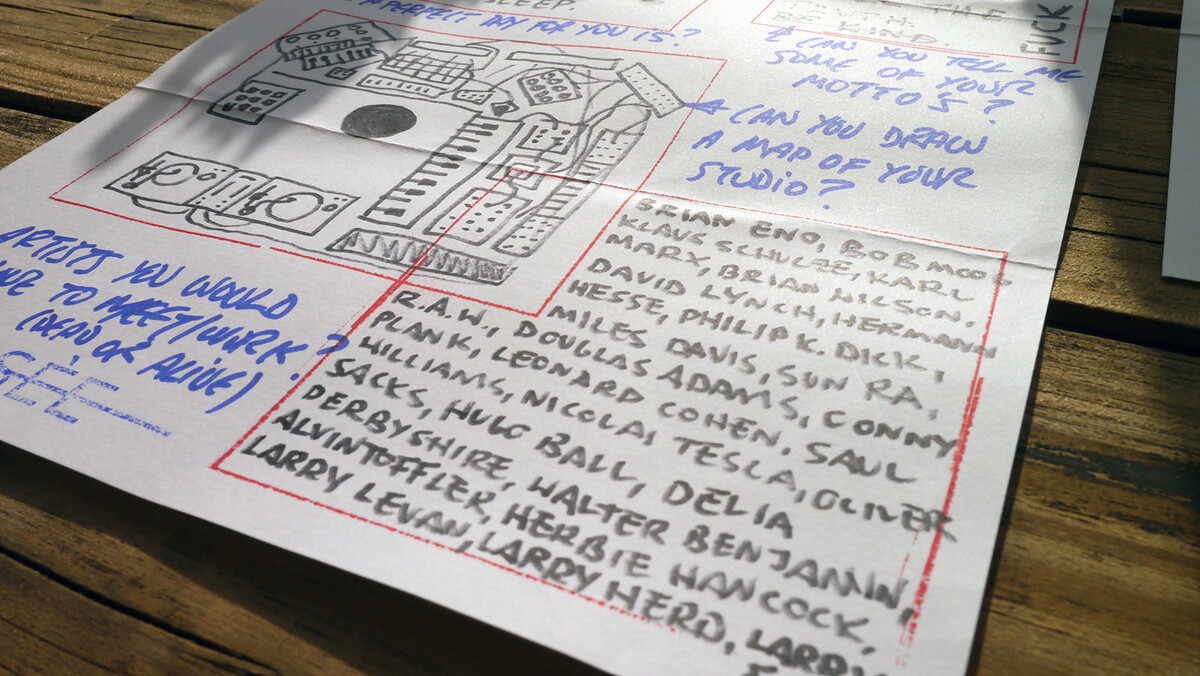 SLEEP.
A PERFECT DAY FOR YOU IS?
THE
TRUTH.
BE KIND.
FUCK
CAN YOU TELL ME
SOME OF YOUR
MOTTOS?
CAN YOU DRAW
A MAP OF YOUR
STUDIO?
ARTISTS YOU WOULD
TO MEET/WORK?
(DEAD OR ALIVE)
BRIAN ENO, BOB MOOG,
KLAUS SCHULZE, KARL
MARX, BRIAN WILSON,
DAVID LYNCH, HERMANN
HESSE, PHILIP K. DICK,
MILES DAVIS, SUN RA,
R.A.W., DOUGLAS ADAMS, CONNY
PLANK, LEONARD COHEN, SAUL
WILLIAMS, NICOLAI TESLA, OLIVER
SACKS, HUGO BALL, DELIA
DERBYSHIRE, WALTER BENJAMIN,
ALVIN TOFFLER, HERBIE HANCOCK,
LARRY LEVAN, LARRY HERD, LARRY